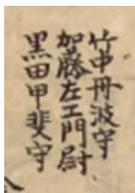 竹中丹波守
加藤左工門尉
黒田甲斐守